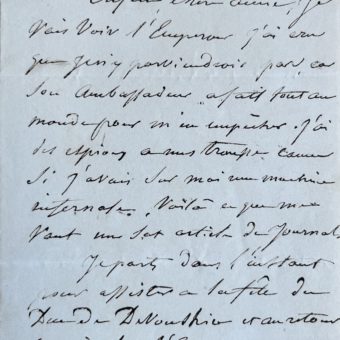 Enfin chère amie, je
vais voir l'Empereur j'ai cru
que j'y parviendrois pas car
son Ambassadeur a fait tout au
monde pour m'en empêcher. J'ai
des espions a mes trousses comme
si j'avais sur moi une machine
infernale. Voilà ce que me
vaut un sot article de journal
Je parts dans l'instant
pour assister a la fête du
Duc de Devonshire et au retour